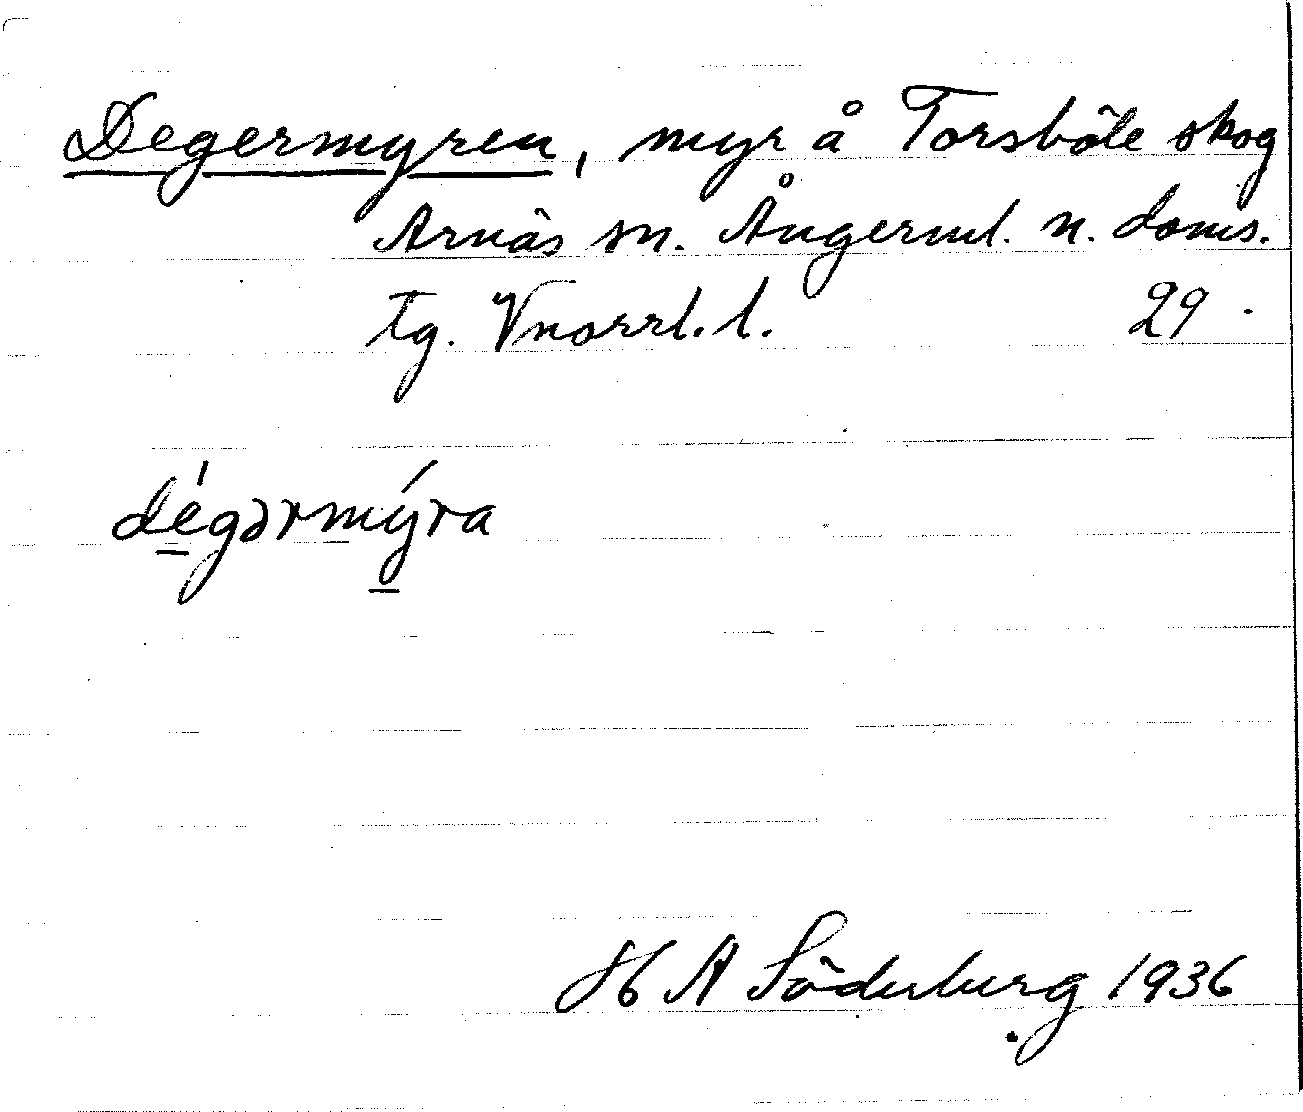 Degermyren, myr å Torsböle skog
Arnäs sn. Ångerml. n. doms.
tg. Vnorrl. l. 29.
dégərmýra
H A Söderberg 1936